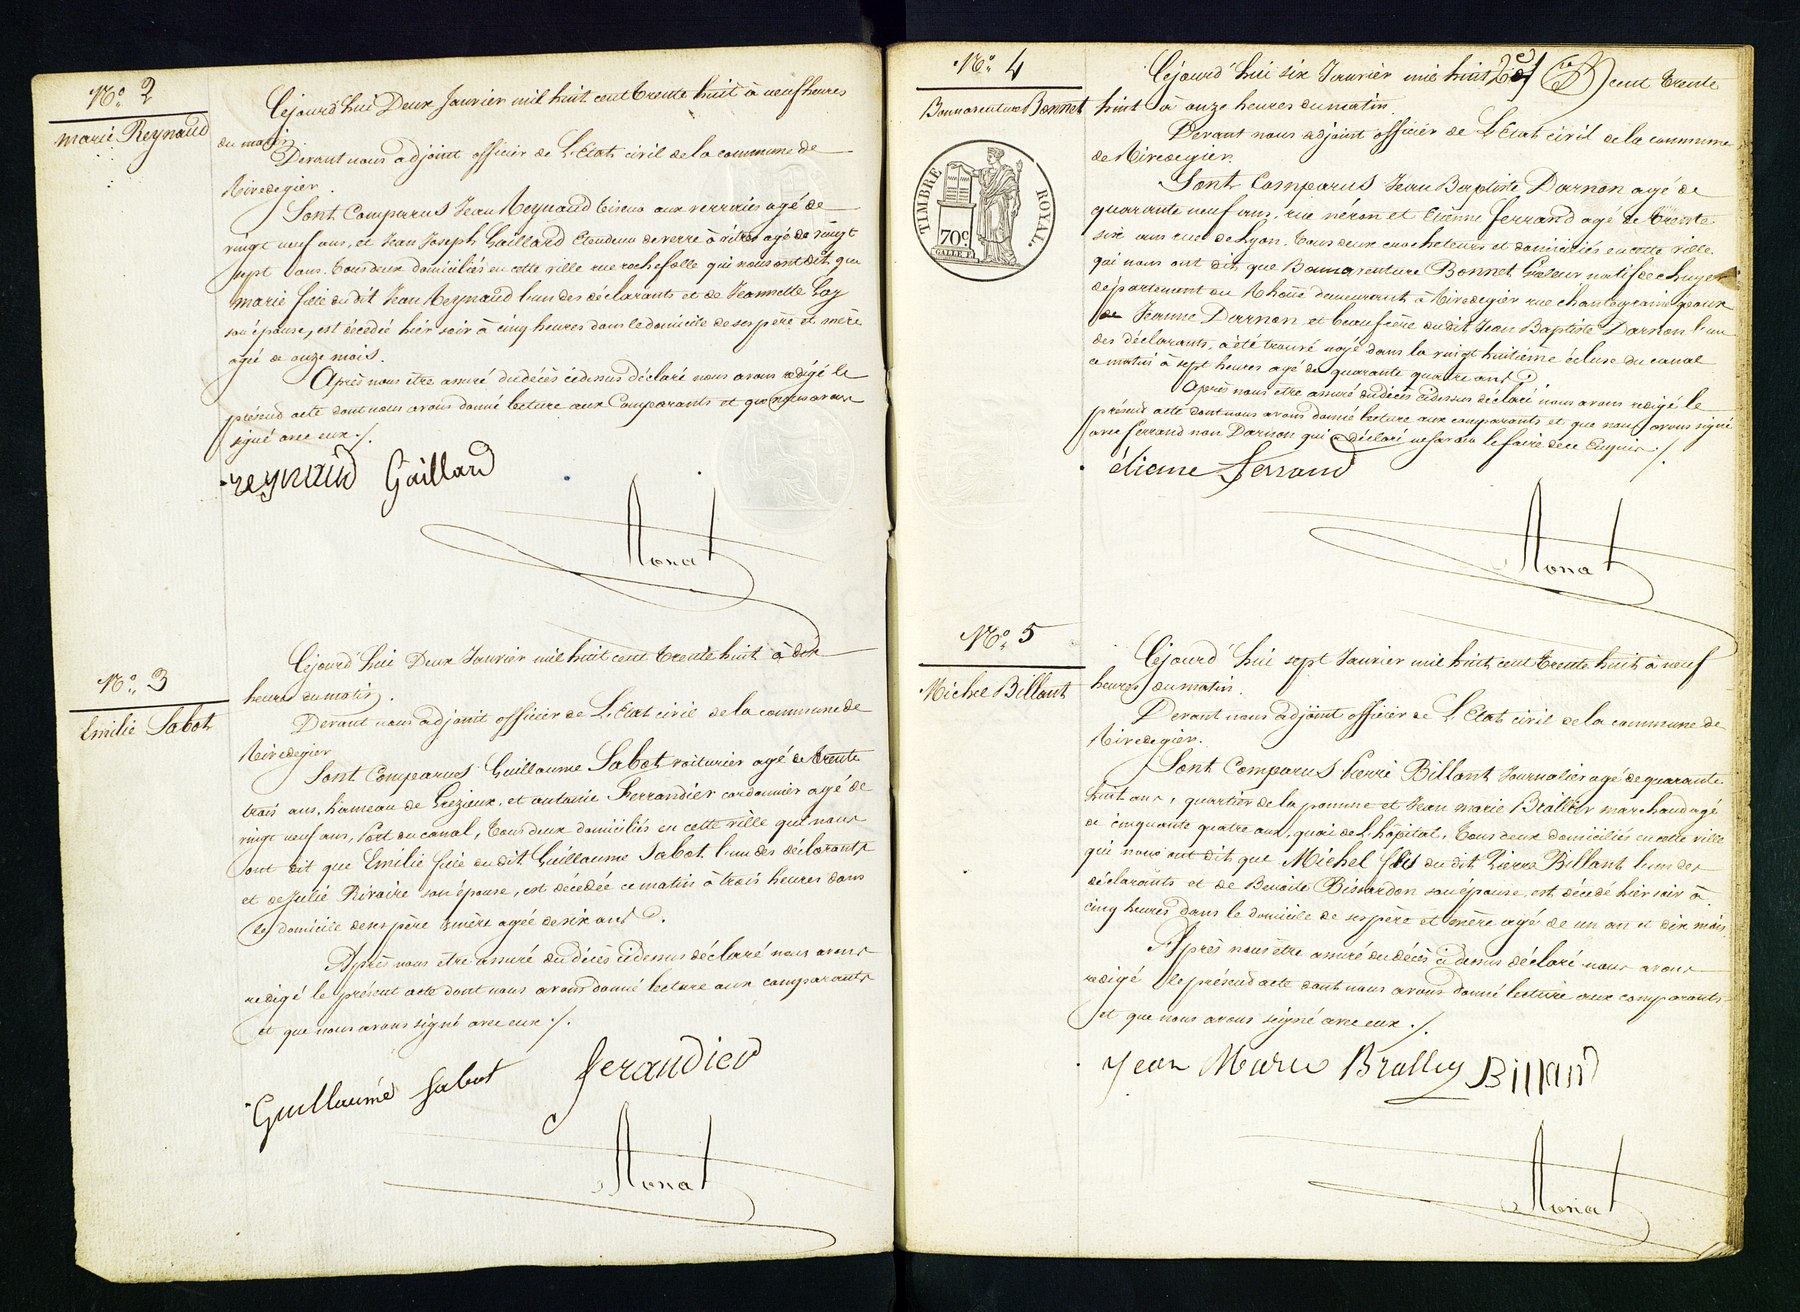 N° 2
Marie Reynaud
Cejourd'hui Deux Janvier mil huit cent trente huit à neuf heures
du matin.
Devant nous adjoint officier de L'Etat civil de la commune de
Rivedegier.
Sont Comparus Jean Reynaud tiseur aux verreries agé de
vingt neuf ans, et Jean Joseph Gaillard Etendeur de verre à vitres agé de vingt
sept ans. tous deux domiciliés en cette ville rue rochefolle qui nous ont dit que
Marie fille du dit Jean Reynaud l'un des déclarants et de Jeannette
son épouse, est décédée hier soir à cinq heures dans le domicile de ses père et mère
agée de onze mois.
Après nous être assuré du décès cidessus déclaré nous avons rédigé le
présend acte dont nous avons donné lecture aux Comparants et que nous avons
signé avec eux ./.
reynaud Gaillard
Monat
N° 3
Emilie Sabot
Cejourd'hui Deux Janvier mil huit cent trente huit à dix
heures du matin.
Devant nous adjoint officier de L'Etat civil de la commune de
Rivedegier
Sont Comparus Guillaume Sabot voiturier agé de trente
trois ans, hameau de Grézieux, et antoine Ferrandier cordonnier agé de
vingt neuf ans, Port du canal, tous deux domiciliés en cette ville qui nous
ont dit que Emilie fille du dit Guillaume Sabot l'un des déclarants
et de Julie Rivaire son épouse, est décédée ce matin à trois heures dans
le domicile de ses père mère agée de six ans.
Après nous être assuré du décès cidessus déclaré nous avons
redigé le présent acte dont nous avons donné lecture aux comparants
et que nous avons signé avec eux ./.
Guillaumé Sabot ferandier
Monat
N° 4
Bonnaventure Bonnet
TIMBRE ROYAL.
70c
GALLE F.
Cejourd'hui six Janvier mil huit cent trente
huit à onze heures du matin
Devant nous adjoint officier de L'Etat civil de la commune
de Rivedegier.
Sont Comparus Jean Baptiste Darnon agé de
quarante neuf ans, rue néron et Etienne ferrand agé de trente
six ans rue de Lyon, tous deux crocheteurs et domiciliés en cette ville
qui nous ont dit que Bonnaventure Bonnet natif de chuyer
département du Rhône demeurant à Rivedegier rue chantegraine époux
de Jeanne Darnon et beaufrère du dit Jean Baptiste Darnon l'un
des déclarants, a été trouvé noyé dans la vingt huitième écluse du canal
ce matin à sept heures agé de quarante quatre ans
Après nous être assuré du décès cidessus déclaré nous avons redigé le
présent acte dont nous avons donné lecture aux comparants et que nous avons signé
avec ferrand non Darnon qui a déclaré ne savoir le faire de ce Enquis ./.
étienne Ferrand
Monat
N° 5
Michel Billant
Cejourd'hui sept Janvier mil huit cent trente huit à neuf
heures du matin.
Devant nous adjoint officier de L'Etat civil de la commune de
Rivedegier.
Sont Comparus Pierre Billant Journalier agé de quarante
huit ans, quartier de la pomme et Jean marie Brallier marchand agé
de cinquante quatre ans, quai de l'hôpital, tous deux domiciliés en cette ville
qui nous ont dit que Michel fils du dit Pierre Billant l'un des
déclarants et de Benoite Bissardon son épouse, est décédé hier soir à
cinq heures dans le domicile de ses père et mère agé de un an et dix mois
Après nous être assuré du décès cidessus déclaré nous avons
redigé le présend acte dont nous avons donné lecture aux comparants
et que nous avons signé avec eux ./.
Jean Marie Bralley Billand
Monat